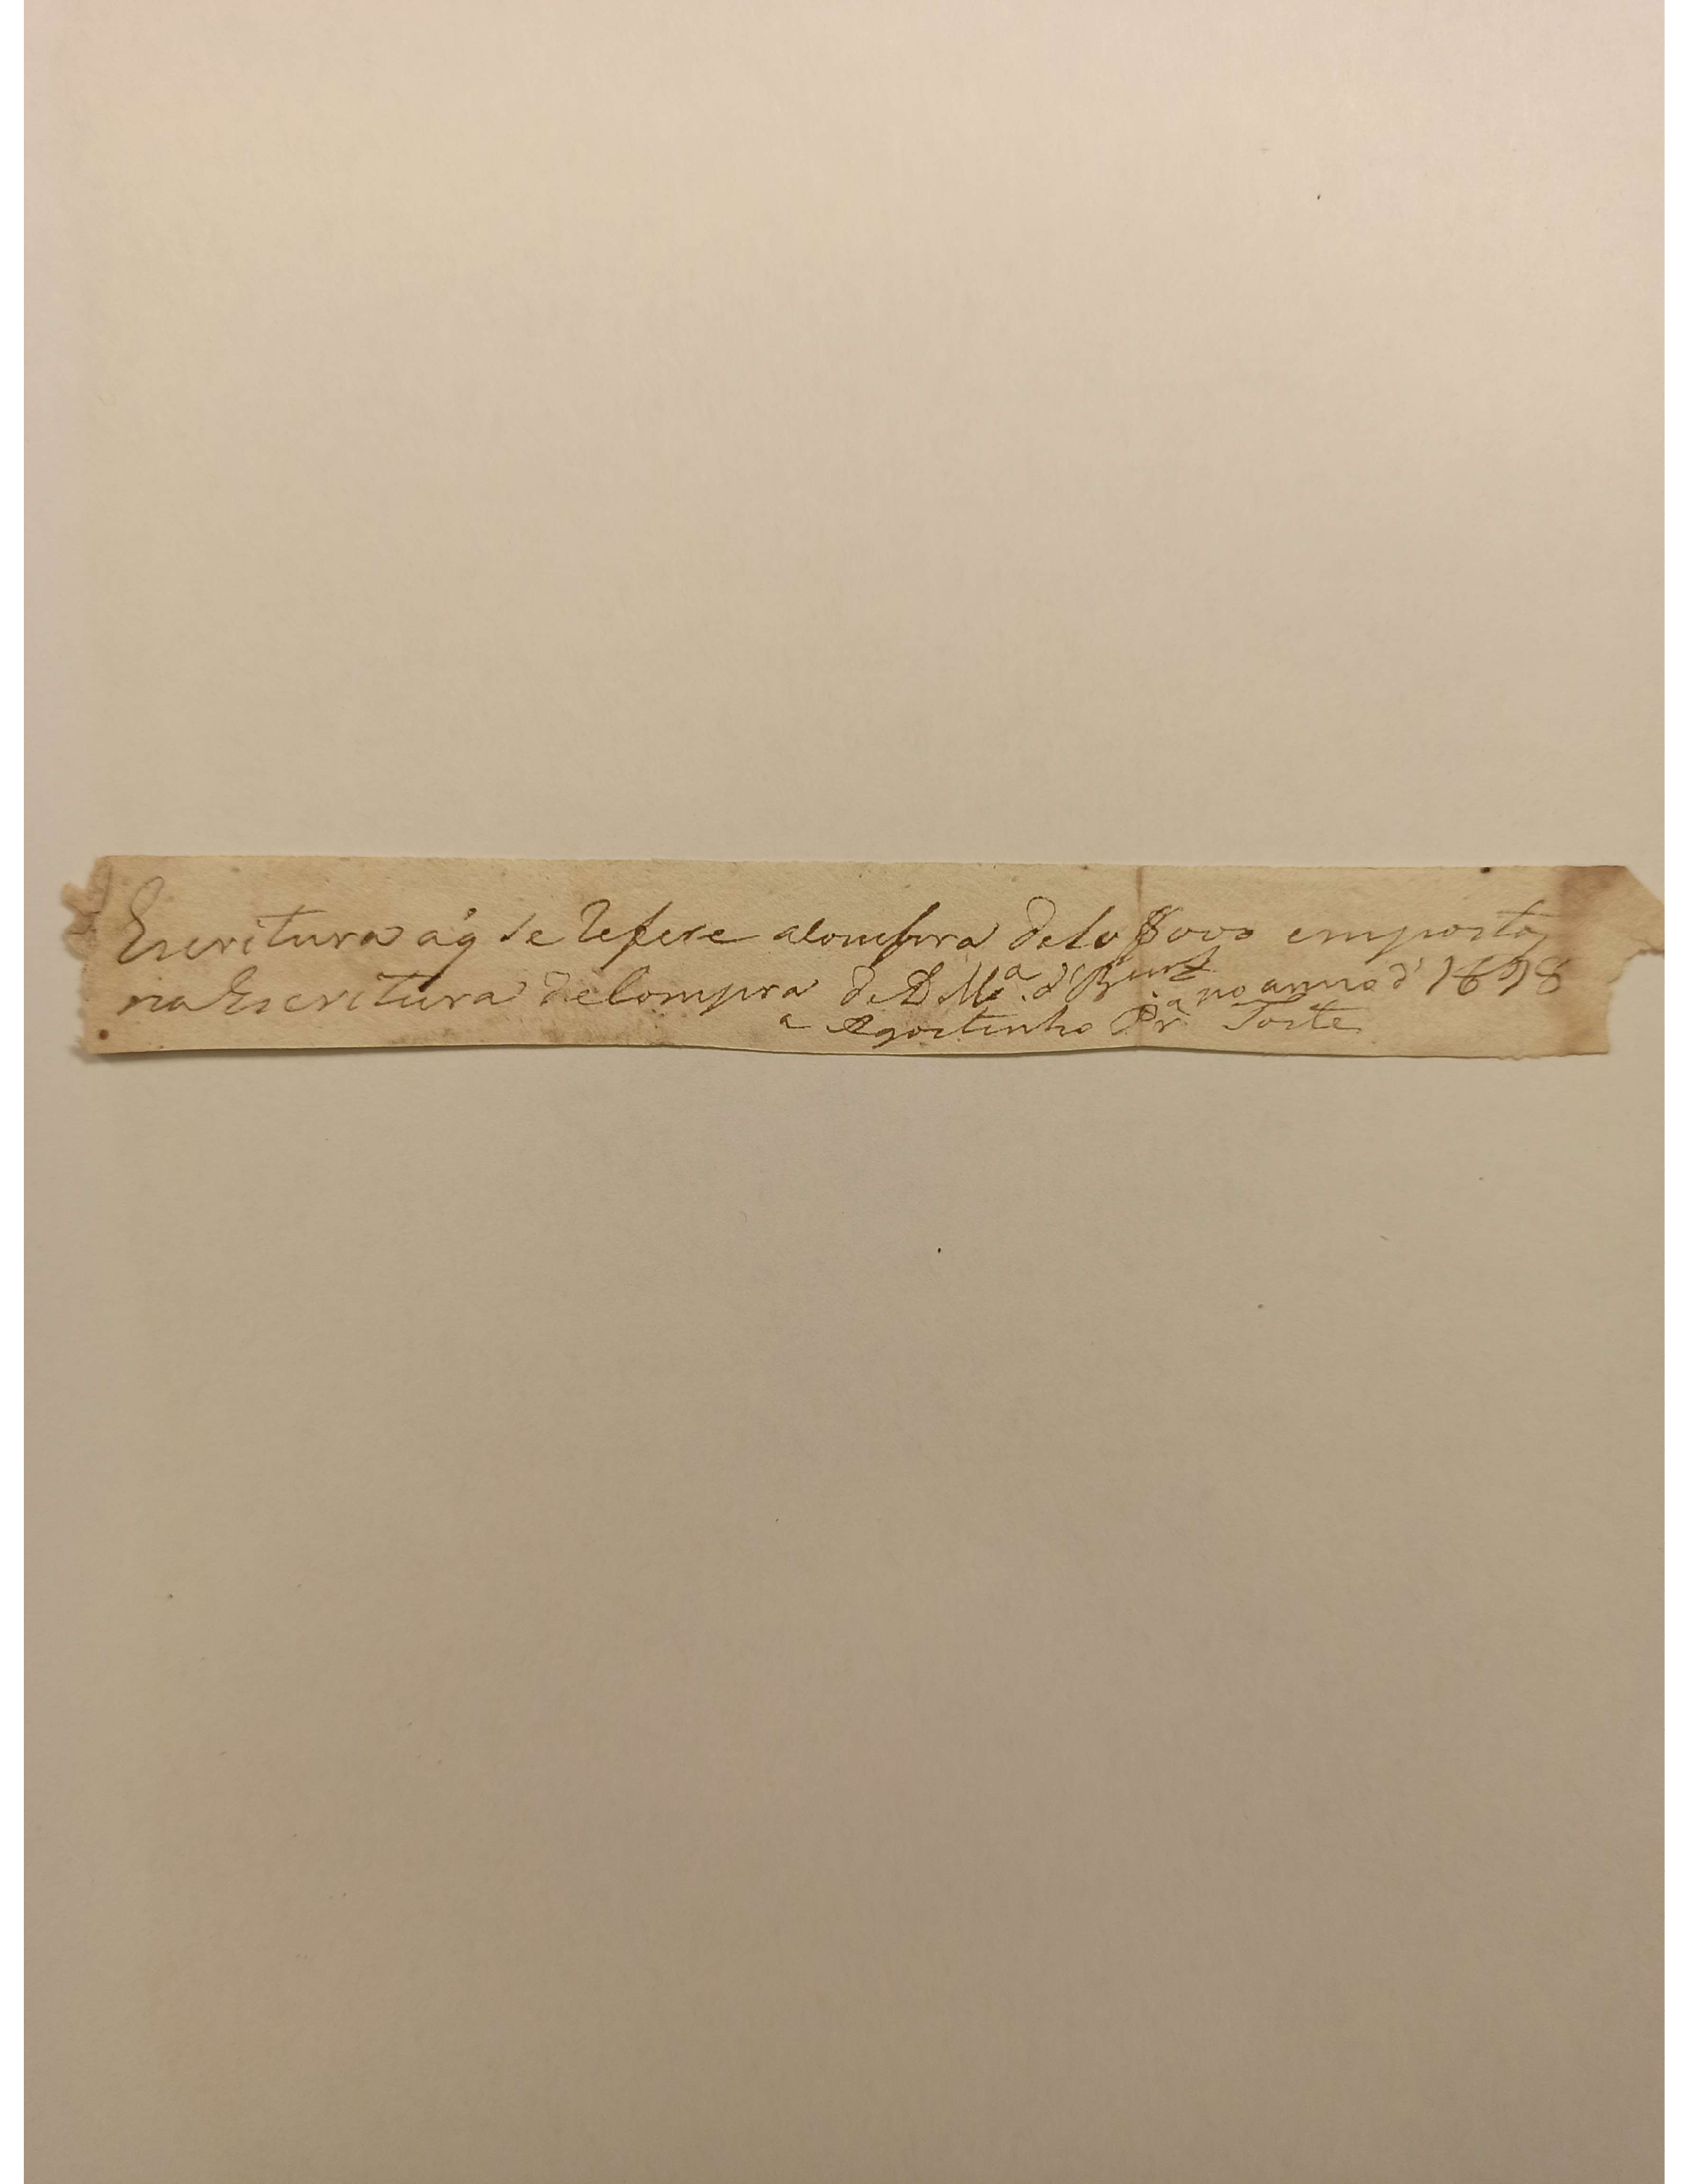 Escritura a q̃ se Refere a Compra de 10$000 emposto
na Escritura de Compra de D. Mª. d' no anno d' 1698
a Agostinho Prª Toste